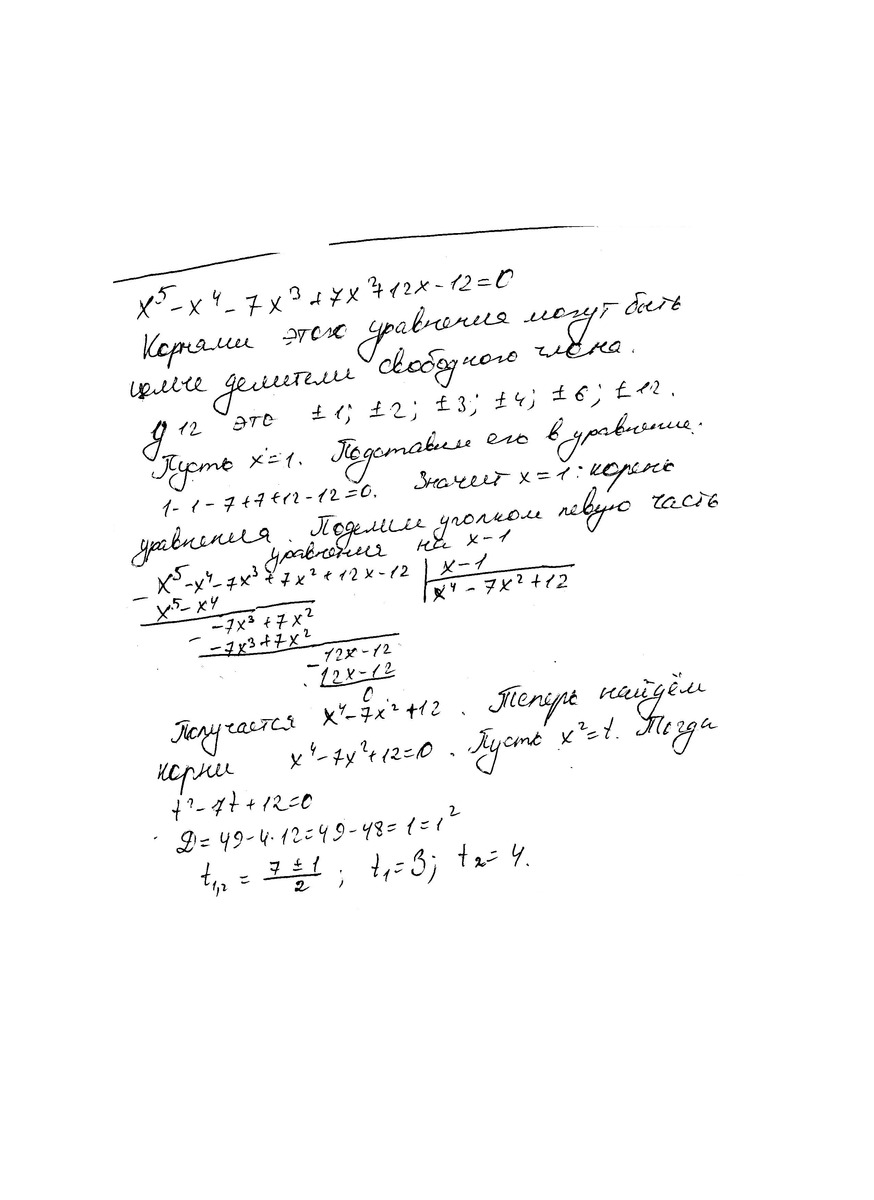 x⁵ - x⁴ - 7x³ + 7x² + 12x - 12 = 0
Корнями этого уравнения могут быть
целые делители свободного члена.
У 12 это ±1; ±2; ±3; ±4; ±6; ±12.
Пусть x=1. Подставим его в уравнение.
1-1-7+7+12-12=0. Значит x=1: корень
уравнения. Поделим уголком левую часть
уравнения на x-1
- x⁵-x⁴-7x³+7x²+12x-12 | x-1
x⁵-x⁴ x⁴-7x²+12
-7x³+7x²
- -7x³+7x²
- 12x-12
12x-12
0
Получается x⁴-7x²+12. Теперь найдём
корни x⁴-7x²+12=0. Пусть x²=t. Тогда
t²-7t+12=0
D=49-4·12=49-48=1=1²
t₁,₂ = (7±1)/2; t₁=3; t₂=4.